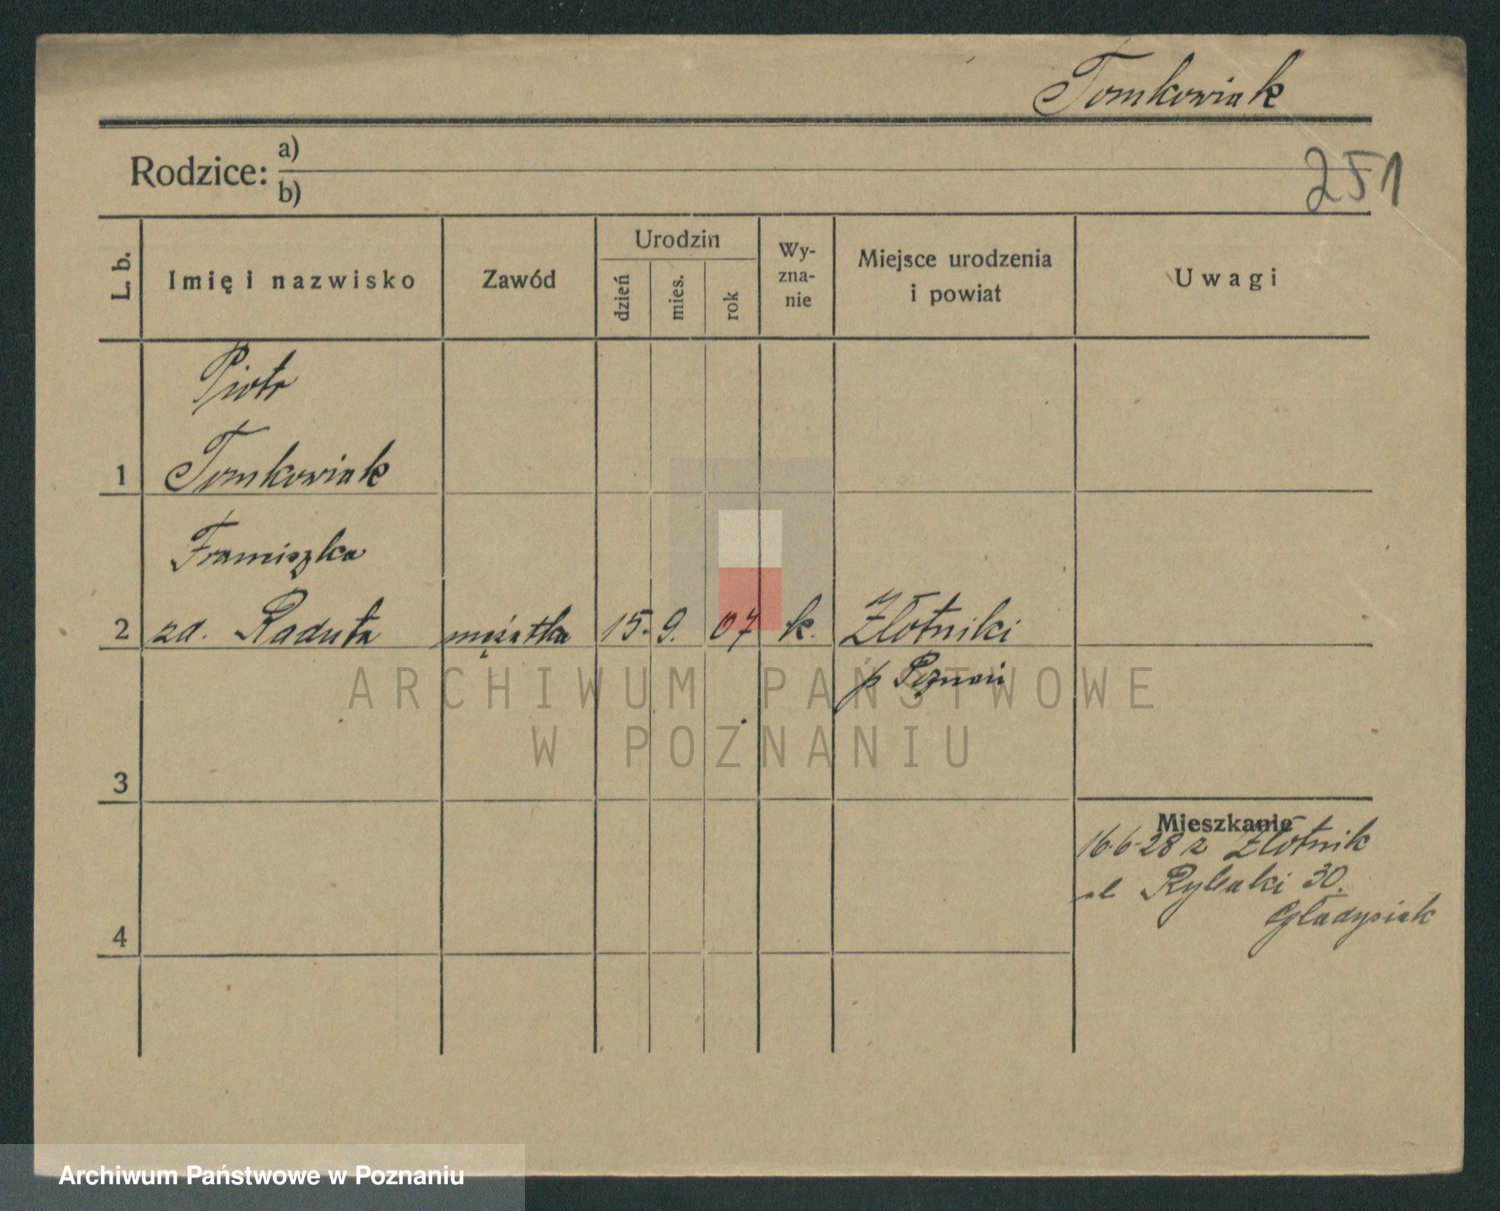 Tomkowiak
251
Rodzice: a)
b)
L. b.
Imię i nazwisko
Zawód
Urodzin
dzień
mies.
rok
Wy-
zna-
nie
Miejsce urodzenia
i powiat
Uwagi
Piotr
1 Tomkowiak
Franciszka
2 zd. Raduła mężatka 15. 9. 07 k. Złotniki
p Poznań
ARCHIWUM PAŃSTWOWE
W POZNANIU
3
Mieszkanie
16.6.28 z Złotnik
Rybaki 30.
Gładysiak
4
Archiwum Państwowe w Poznaniu